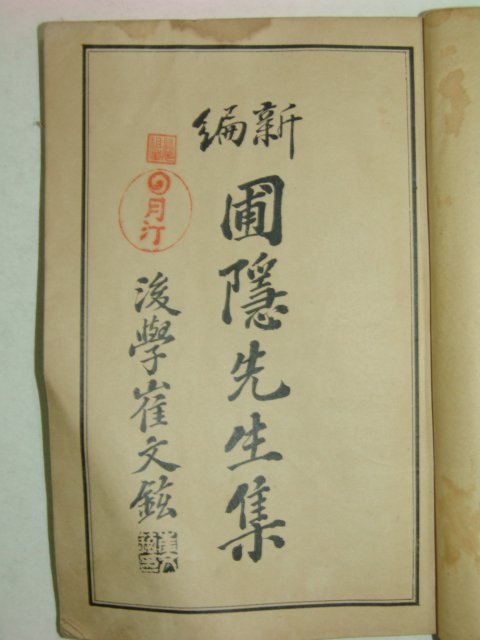 新編
圃隱先生集
後學崔文鉉
月汀